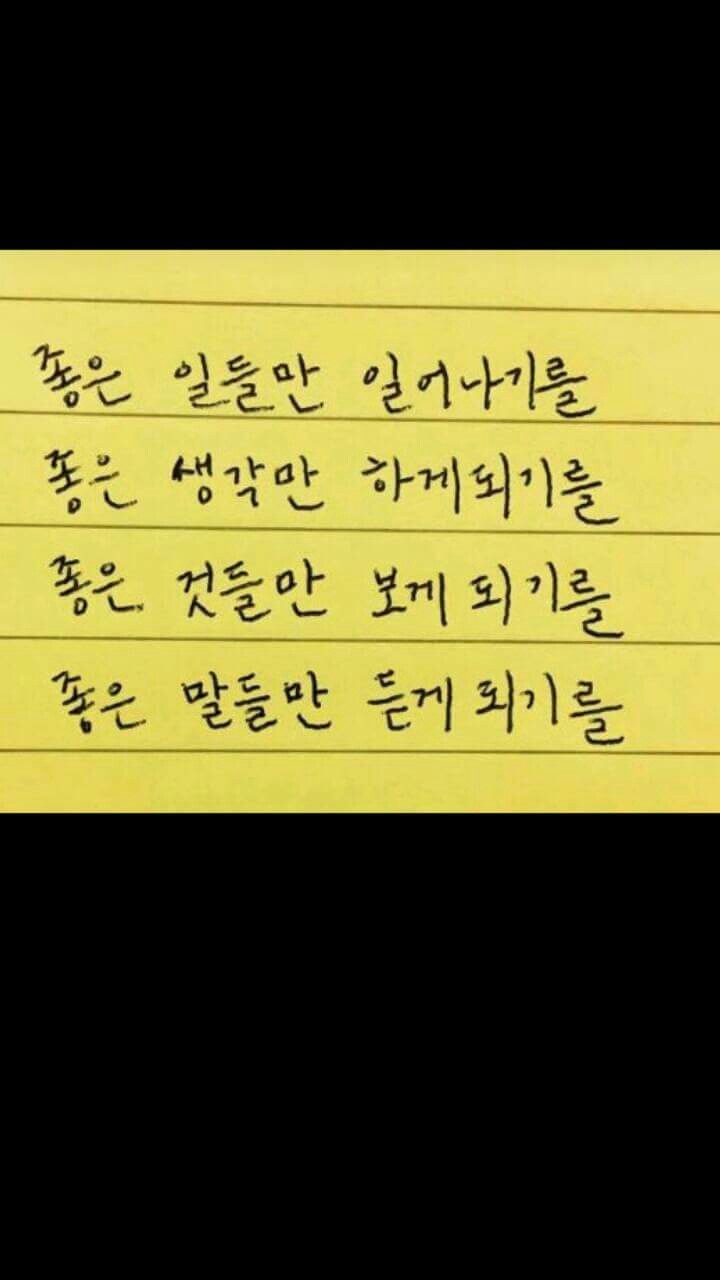 좋은 일들만 일어나기를
좋은 생각만 하게되기를
좋은 것들만 보게 되기를
좋은 말들만 듣게 되기를